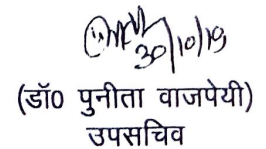 30/10/19
(डॉ0 पुनीता वाजपेयी)
उपसचिव